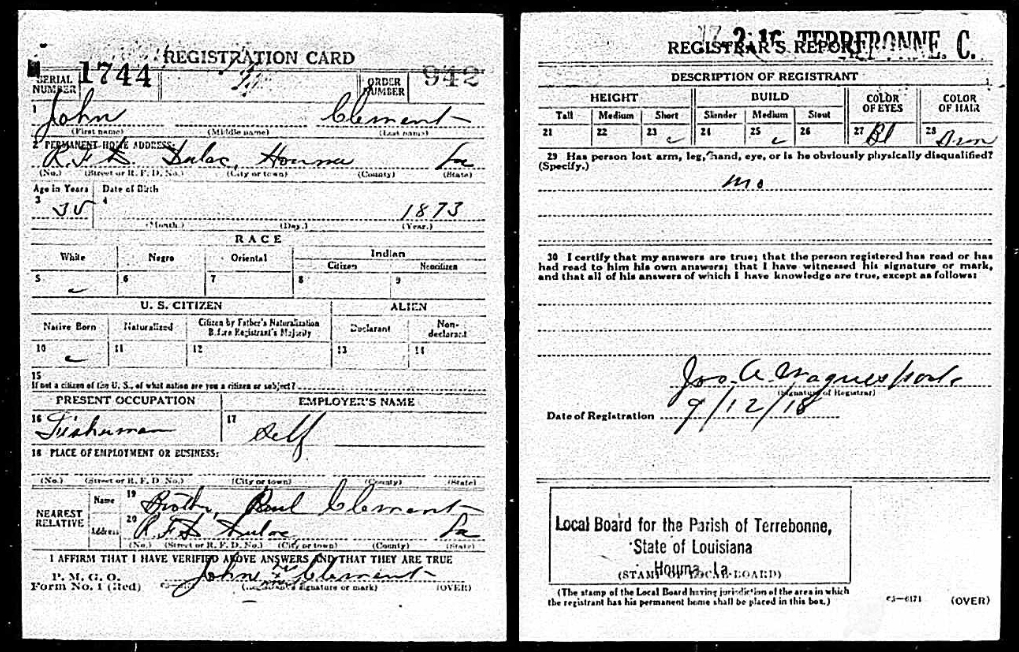 REGISTRATION CARD
SERIAL NUMBER 1744
ORDER NUMBER 942
1 John Clement
(First name) (Middle name) (Last name)
2 PERMANENT HOME ADDRESS:
R.F.D. Dulac, Houma La
(No.) (Street or R. F. D. No.) (City or town) (County) (State)
Age in Years Date of Birth
3 4 1873
(Month.) (Day.) (Year.)
RACE
White Negro Oriental Indian
Citizen Noncitizen
5 ✓ 6 7 8 9
U. S. CITIZEN ALIEN
Native Born Naturalized Citizen by Father's Naturalization Before Registrant's Majority Declarant Non-declarant
10 ✓ 11 12 13 14
15
If not a citizen of the U. S., of what nation are you a citizen or subject?
PRESENT OCCUPATION EMPLOYER'S NAME
16 Fisherman 17 Self
18 PLACE OF EMPLOYMENT OR BUSINESS:
(No.) (Street or R. F. D. No.) (City or town) (County) (State)
NEAREST RELATIVE
Name 19 Brother, Paul Clement
Address 20 R.F.D. Dulac, La
(No.) (Street or R. F. D. No.) (City or town) (County) (State)
I AFFIRM THAT I HAVE VERIFIED ABOVE ANSWERS AND THAT THEY ARE TRUE
P. M. G. O.
Form No. 1 (Red) John Clement
(Registrant's signature or mark) (OVER)
TERREBONNE. C.
REGISTRAR'S REPORT
DESCRIPTION OF REGISTRANT
HEIGHT BUILD COLOR OF EYES COLOR OF HAIR
Tall Medium Short Slender Medium Stout
21 22 23 ✓ 24 25 ✓ 26 27 Bl 28 Brn
29 Has person lost arm, leg, hand, eye, or is he obviously physically disqualified?
(Specify.)
no
30 I certify that my answers are true; that the person registered has read or has
had read to him his own answers; that I have witnessed his signature or mark,
and that all of his answers of which I have knowledge are true, except as follows:
(Signature of Registrar)
Date of Registration 9/12/18
Local Board for the Parish of Terrebonne,
State of Louisiana
Houma, La.
(STAMP OF LOCAL BOARD)
(The stamp of the Local Board having jurisdiction of the area in which
the registrant has his permanent home shall be placed in this box.)
(OVER)